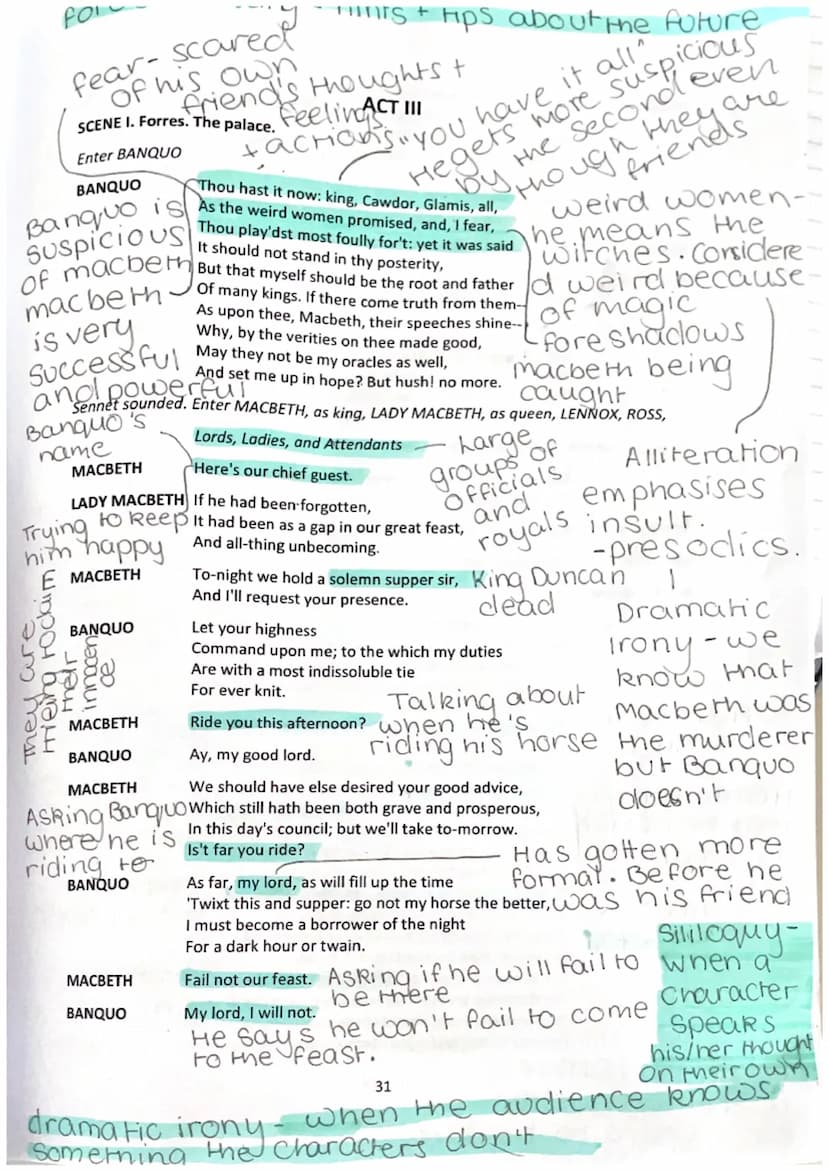 hints + tips about the future
fear- scared
of his own
friend's thoughts +
feelings
+ actions
"you have it all"
He gets more suspicious
by the second even
though they are
friends
ACT III
SCENE I. Forres. The palace.
Enter BANQUO
BANQUO
Thou hast it now: king, Cawdor, Glamis, all,
As the weird women promised, and, I fear,
Thou play'dst most foully for't: yet it was said
It should not stand in thy posterity,
But that myself should be the root and father
Of many kings. If there come truth from them--
As upon thee, Macbeth, their speeches shine--
Why, by the verities on thee made good,
May they not be my oracles as well,
And set me up in hope? But hush! no more.
Banquo is
suspicious
of macbeth
macbeth
is very
successful
and powerful
weird women-
he means the
witches. Considere
d weird because
of magic
foreshadows
macbeth being
caught
Sennet sounded. Enter MACBETH, as king, LADY MACBETH, as queen, LENNOX, ROSS,
Lords, Ladies, and Attendants
Banquo's
name
Large
groups of
officials
and
royals
Alliteration
emphasises
insult.
-presodics.
MACBETH
Here's our chief guest.
LADY MACBETH
If he had been forgotten,
It had been as a gap in our great feast,
And all-thing unbecoming.
Trying to keep
him happy
MACBETH
To-night we hold a solemn supper sir,
And I'll request your presence.
King Duncan
dead
Dramatic
irony - we
know that
macbeth was
the murderer
but Banquo
doesn't
BANQUO
Let your highness
Command upon me; to the which my duties
Are with a most indissoluble tie
For ever knit.
MACBETH
Ride you this afternoon?
Talking about
when he's
riding his horse
BANQUO
Ay, my good lord.
MACBETH
We should have else desired your good advice,
Which still hath been both grave and prosperous,
In this day's council; but we'll take to-morrow.
Is't far you ride?
Asking Banquo
where he is
riding to
BANQUO
As far, my lord, as will fill up the time
'Twixt this and supper: go not my horse the better,
I must become a borrower of the night
For a dark hour or twain.
Has gotten more
formal. Before he
was his friend
MACBETH
Fail not our feast.
Asking if he will fail to
be there
BANQUO
My lord, I will not.
He says he won't fail to come
to the feast.
Sililcoquy-
when a
character
speaks
his/her thought
on their own
31
dramatic irony - when the audience knows
something the characters don't